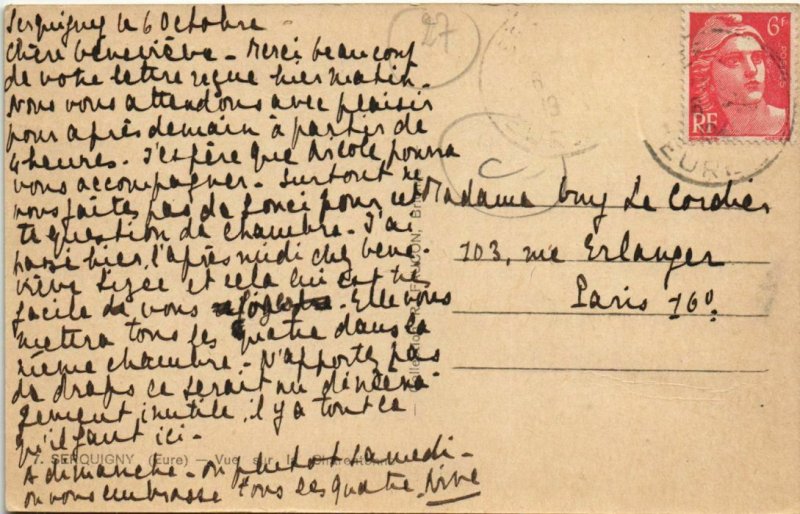 Serquigny le 6 Octobre
Chère Geneviève - Merci beaucoup
de votre lettre reçue hier matin.
Nous vous attendons avec plaisir
pour après demain à partir de
4 heures. J'espère que Nicole pourra
vous accompagner. Surtout ne
vous faites pas de souci pour cet
te question de chambre. J'ai
passé hier l'après midi chez Gene-
viève et cela lui est très
facile de vous Elle vous
mettra tous les quatre dans la
même chambre. N'apportez pas
de draps ce serait un déména-
gement inutile, il y a tout ce
qu'il faut ici -
A dimanche - ou plutôt samedi -
on vous embrasse tous les quatre.
7. SERQUIGNY (Eure) - Vue sur la Charentonne
27
C
6F
RF
EURE
Madame Guy Le Cordier
103, rue Erlanger
Paris 16°